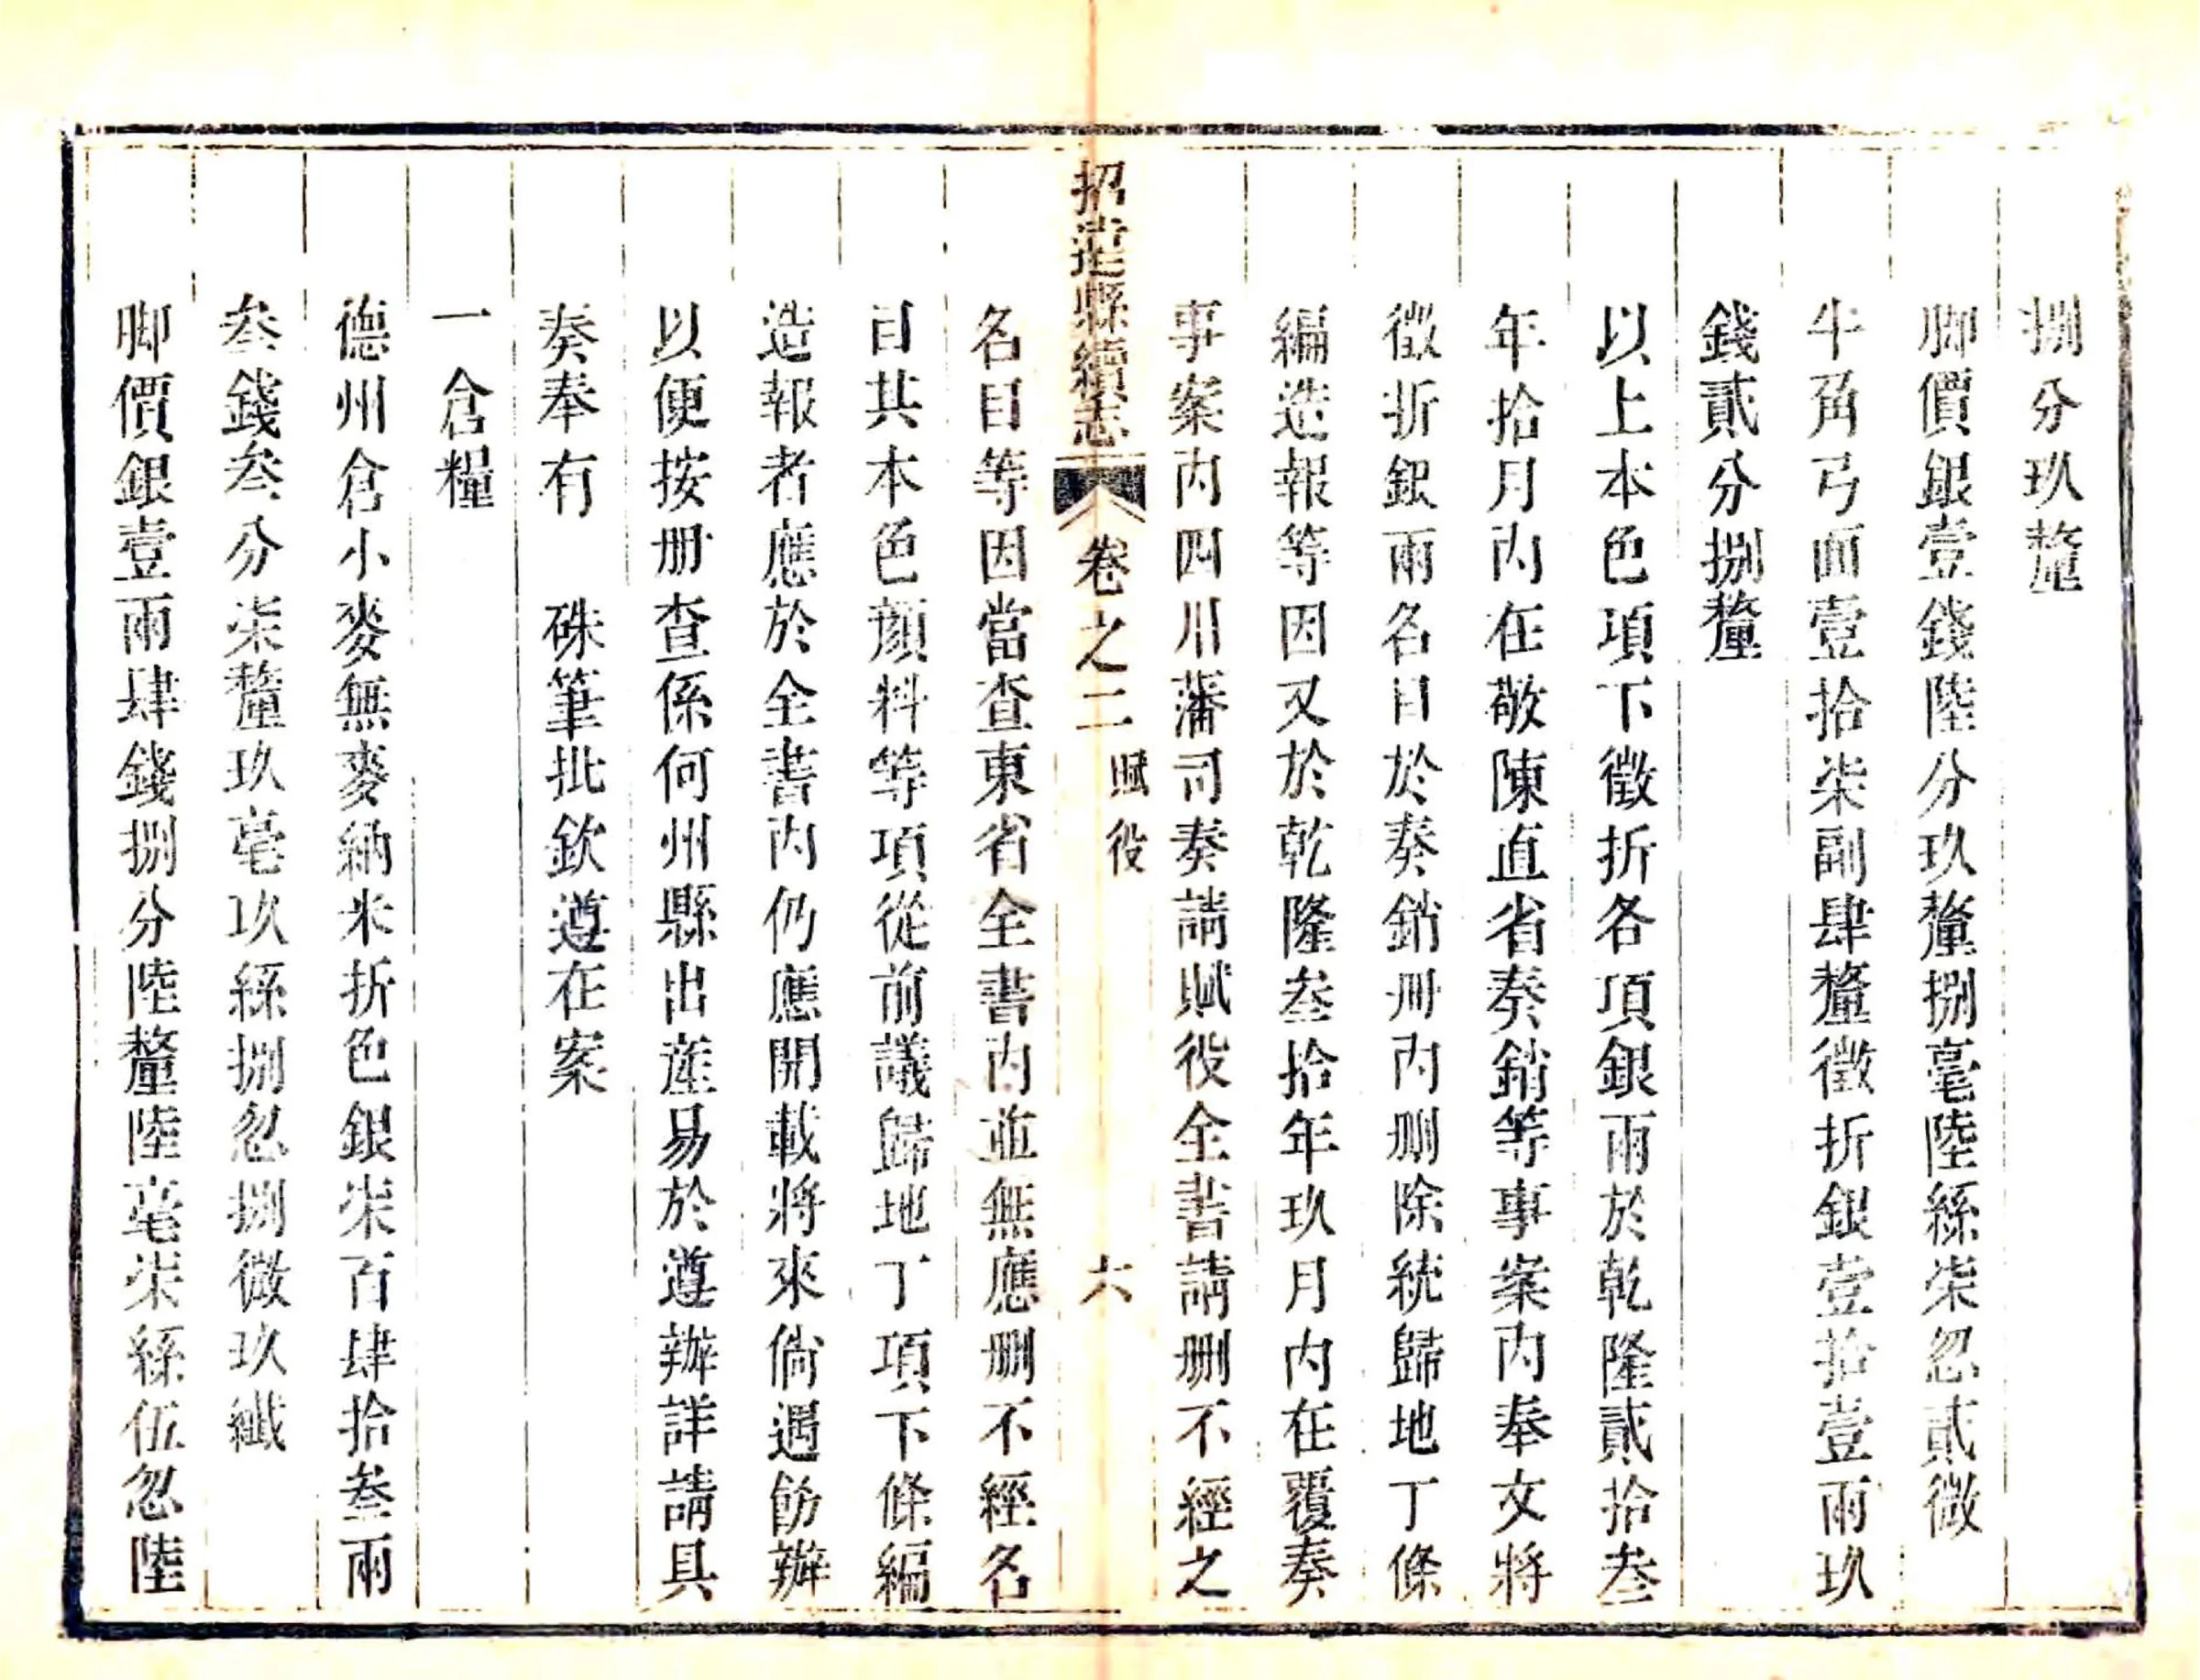 捌分玖釐
脚價銀壹錢陸分玖釐捌毫陸絲柒忽貳微
牛角弓面壹拾柒副肆釐徵折銀壹拾壹兩玖
錢貳分捌釐
以上本色項下徵折各項銀兩於乾隆貳拾叁
年拾月內在敬陳直省奏銷等事案內奉文將
徵折銀兩名目於奏銷册内删除統歸地丁條
編造報等因又於乾隆叁拾年玖月內在覆奏
事案內四川藩司奏請賦役全書請删不經之
招遠縣續志 卷之二 賦役 六
名目等因當查東省全書內並無應删不經名
目其本色顏料等項從前議歸地丁項下條編
造報者應於全書內仍應開載將來倘遇飭辦
以便按册查係何州縣出產易於遵辦詳請具
奏奉有 硃筆批欽遵在案
一倉糧
德州倉小麥無麥納米折色銀柒百肆拾叁兩
叁錢叁分柒釐玖毫玖絲捌忽捌微玖纖
脚價銀壹兩肆錢捌分陸釐陸毫柒絲伍忽陸